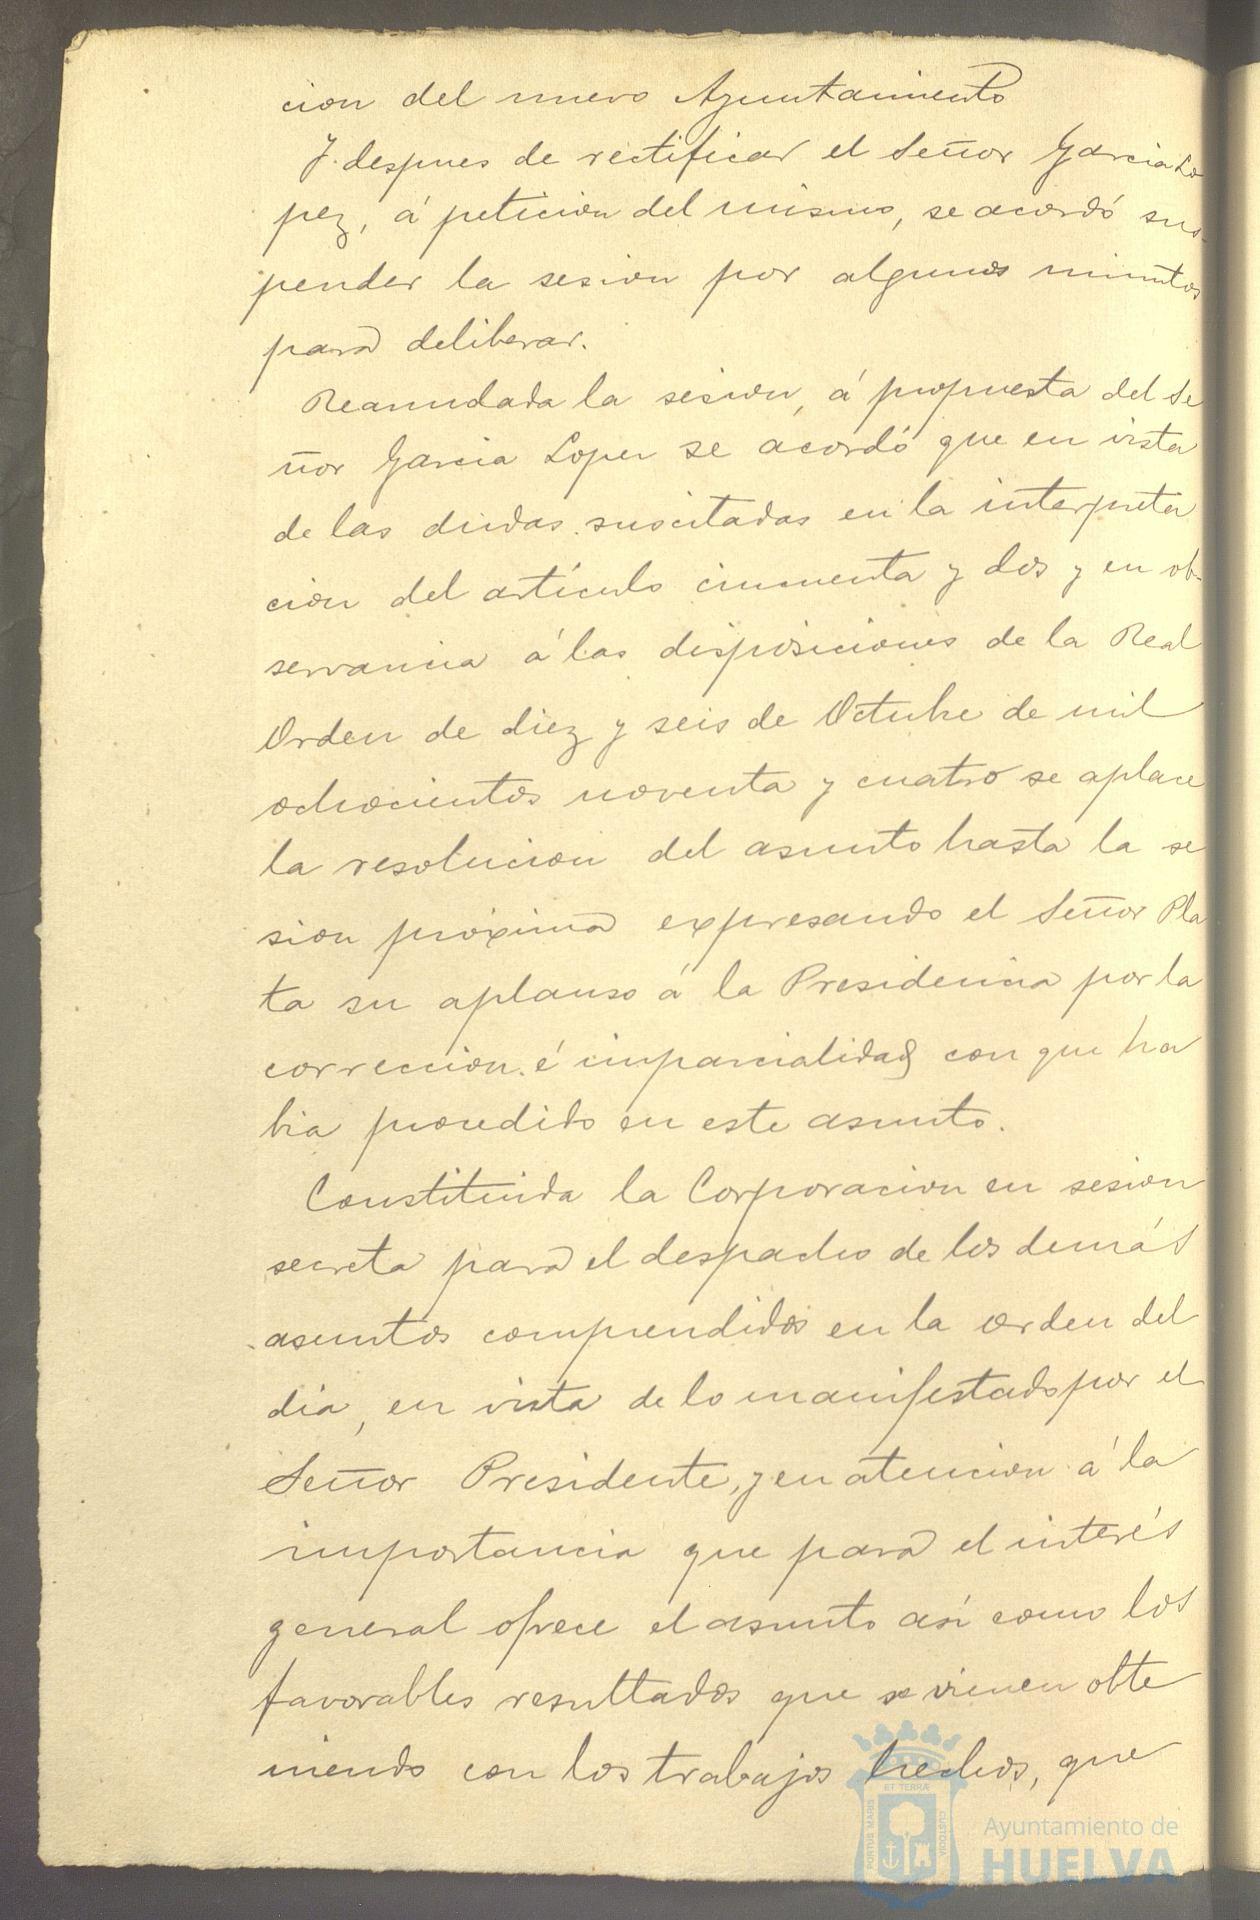 cion del nuevo Ayuntamiento
Y despues de rectificar el Señor Garcia Lo
pez, á peticion del mismo, se acordó sus-
pender la sesion por algunos minutos
para deliberar.
Reanudada la sesion, á propuesta del Se
ñor Garcia Lopez se acordó que en vista
de las dudas suscitadas en la interpreta
cion del artículo cincuenta y dos y en ob-
servancia á las disposiciones de la Real
Orden de diez y seis de Octubre de mil
ochocientos noventa y cuatro se aplace
la resolucion del asunto hasta la se
sion próxima expresando el Señor Pla
ta su aplauso á la Presidencia por la
correccion é imparcialidad con que ha
bia procedido en este asunto.
Constituida la Corporacion en sesion
secreta para el despacho de los demás
asuntos comprendidos en la orden del
dia, en vista de lo manifestado por el
Señor Presidente, y en atencion á la
importancia que para el interés
general ofrece el asunto asi como los
favorables resultados que se vienen obte
niendo con los trabajos hechos, que
ET TERRÆ
PORTUS MARIS
CUSTODIA
Ayuntamiento de
HUELVA